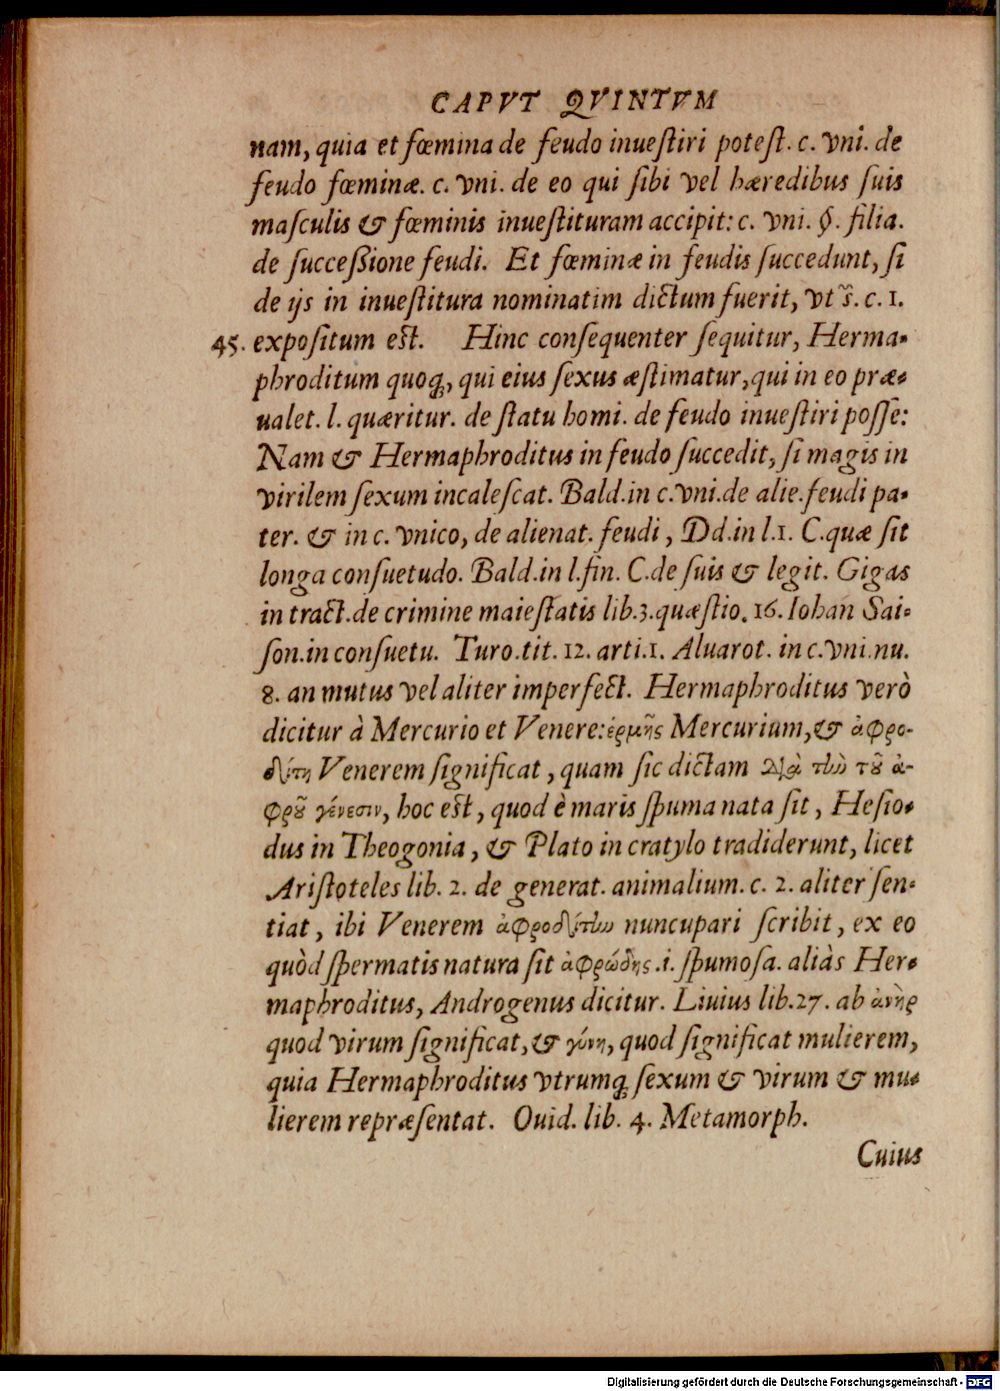 CAPVT QVINTVM
nam, quia et fœmina de feudo inueſtiri poteſt. c. vni. de
feudo fœminæ. c. vni. de eo qui ſibi vel hæredibus ſuis
maſculis & fœminis inueſtituram accipit: c. vni. §. filia.
de ſucceßione feudi. Et fœminæ in feudis ſuccedunt, ſi
de ijs in inueſtitura nominatim dictum fuerit, vt s̃. c. 1.
45. expoſitum eſt. Hinc conſequenter ſequitur, Herma-
phroditum quoq́, qui eius ſexus æſtimatur, qui in eo præ-
ualet. l. quæritur. de ſtatu homi. de feudo inueſtiri poſſe:
Nam & Hermaphroditus in feudo ſuccedit, ſi magis in
virilem ſexum incaleſcat. Bald. in c. vni. de alie. feudi pa-
ter. & in c. vnico, de alienat. feudi, Dd. in l. 1. C. quæ ſit
longa conſuetudo. Bald. in l. fin. C. de ſuis & legit. Gigas
in tract. de crimine maieſtatis lib. 3. quæſtio. 16. Iohan Sai-
ſon. in conſuetu. Turo. tit. 12. arti. 1. Aluarot. in c. vni. nu.
8. an mutus vel aliter imperfect. Hermaphroditus verò
dicitur à Mercurio et Venere: ἑρμῆς Mercurium, & ἀφρο-
δίτη Venerem ſignificat, quam ſic dictam διὰ τὴν τοῦ ἀ-
φροῦ γένεσιν, hoc eſt, quod è maris ſpuma nata ſit, Heſio-
dus in Theogonia, & Plato in cratylo tradiderunt, licet
Ariſtoteles lib. 2. de generat. animalium. c. 2. aliter ſen-
tiat, ibi Venerem ἀφροδίτην nuncupari ſcribit, ex eo
quòd ſpermatis natura ſit ἀφρώδης .i. ſpumoſa. aliàs Her-
maphroditus, Androgenus dicitur. Liuius lib. 27. ab ἀνὴρ
quod virum ſignificat, & γύνη, quod ſignificat mulierem,
quia Hermaphroditus vtrumq́ ſexum & virum & mu-
lierem repræſentat. Ouid. lib. 4. Metamorph.
Cuius
Digitalisierung gefördert durch die Deutsche Forschungsgemeinschaft - DFG